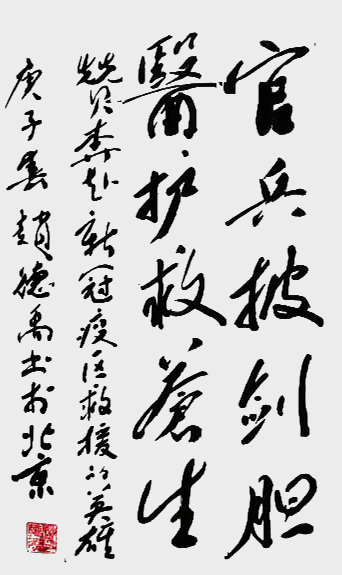 官兵披剑胆
醫护救蒼生
赞奔赴新冠疫区救援的英雄
庚子春趙德禹书于北京